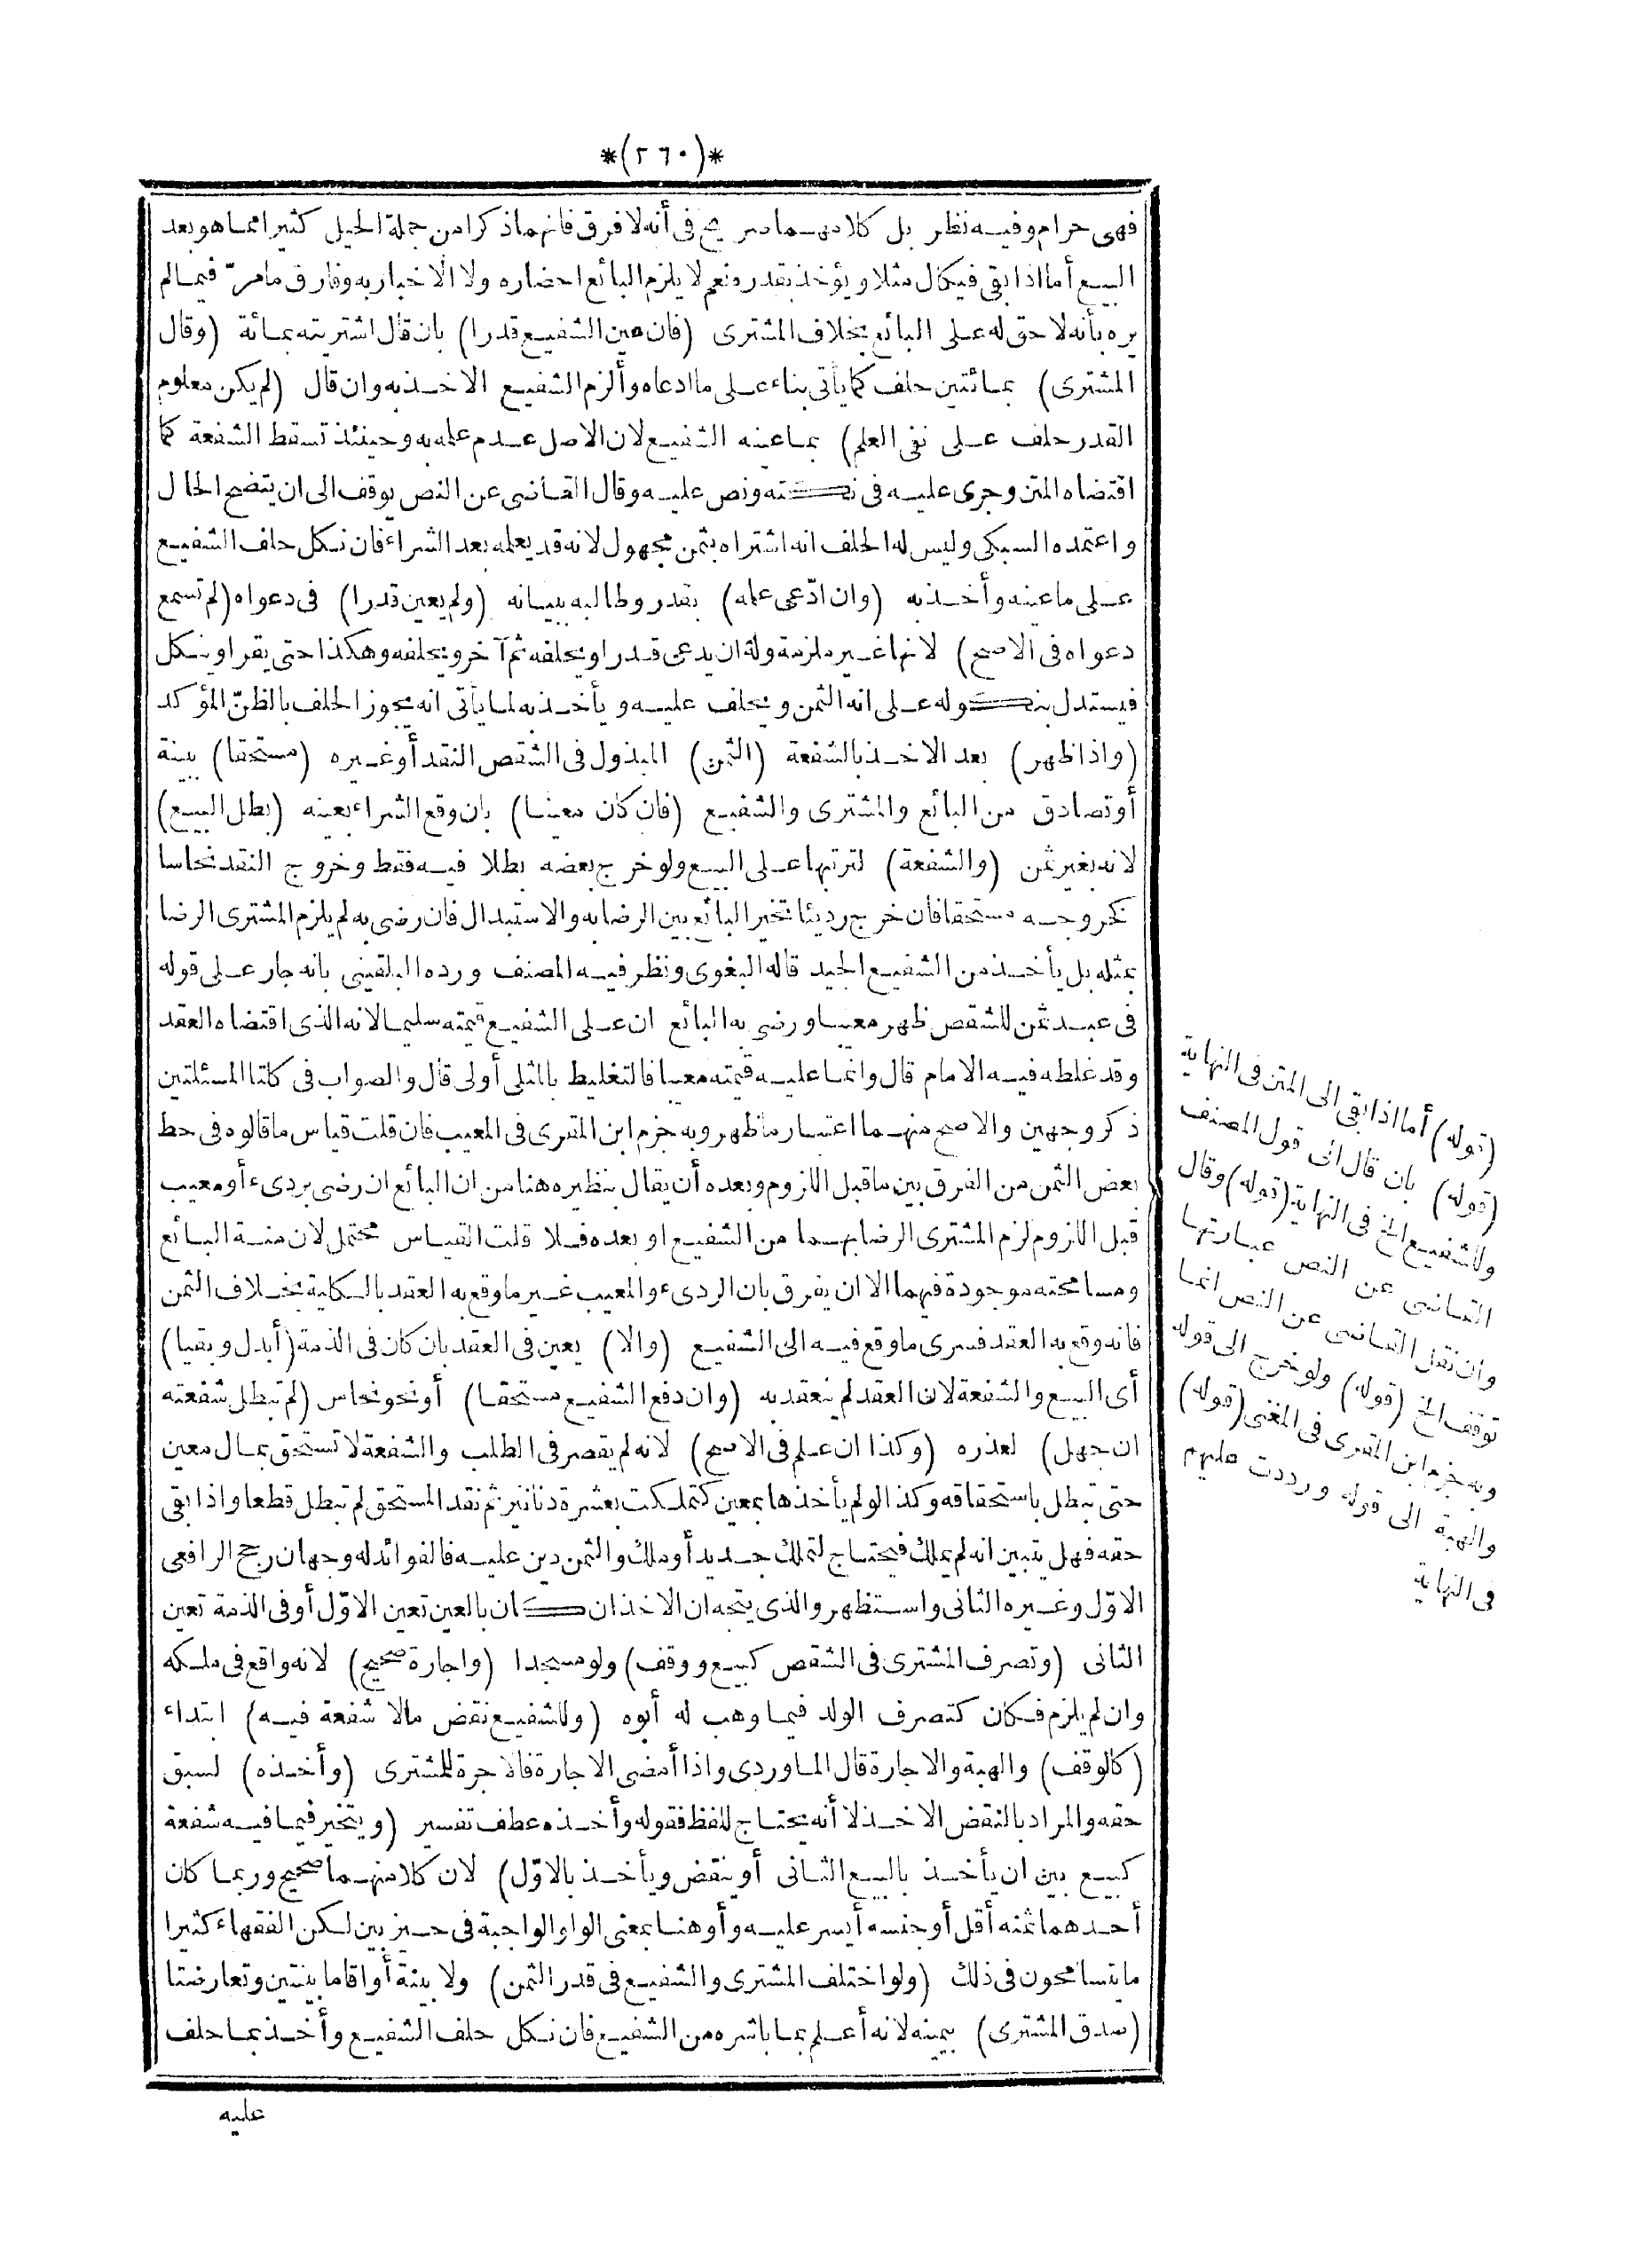 *(٢٦٠)*
فهى حرام وفيه نظر بل كلامهما صريح فى أنه لا فرق فانهما ذكرا من جملة الحيل كثيرا مما هو بعد
البيع أما اذا بقى فيكال مثلا ويؤخذ بقدره نعم لا يلزم البائع احضاره ولا الاخبار به وفارق مامرّ فيما لم
يره بأنه لا حق له على البائع بخلاف المشترى (فان عين الشفيع قدرا) بان قال اشتريته بمائة (وقال
المشترى) بمائتين حلف كما يأتى بناء على ما ادعاه وألزم الشفيع الاخذ به وان قال (لم يكن معلوم
القدر حلف على نفى العلم) بما عينه الشفيع لان الاصل عدم علمه به وحينئذ تسقط الشفعة كما
اقتضاه المتن وجرى عليه فى نكته ونص عليه وقال القاضى عن النص يوقف الى ان يتضح الحال
واعتمده السبكى وليس له الحلف انه اشتراه بثمن مجهول لانه قد يعلمه بعد الشراء فان نكل حلف الشفيع
على ما عينه وأخذ به (وان ادّعى علمه) بقدر وطالبه ببيانه (ولم يعين قدرا) فى دعواه (لم تسمع
دعواه فى الاصح) لانها غير ملزمة وله ان يدعى قدرا ويحلفه ثم آخر ويحلفه وهكذا حتى يقر او ينكل
فيستدل بنكوله على انه الثمن ويحلف عليه ويأخذ به لما يأتى انه يجوز الحلف بالظنّ المؤكد
(واذا ظهر) بعد الاخذ بالشفعة (الثمن) المبذول فى الشقص النقد أو غيره (مستحقا) ببينة
أو تصادق من البائع والمشترى والشفيع (فان كان معينا) بان وقع الشراء بعينه (بطل البيع)
لانه بغير ثمن (والشفعة) لترتبها على البيع ولو خرج بعضه بطلا فيه فقط وخروج النقد نحاسا
كخروجه مستحقا فان خرج رديئا تخير البائع بين الرضا به والاستبدال فان رضى به لم يلزم المشترى الرضا
بمثله بل يأخذ من الشفيع الجيد قاله البغوى ونظر فيه المصنف ورده البلقينى بانه جار على قوله
فى عبد ثمن للشقص ظهر معيبا ورضى به البائع ان على الشفيع قيمته سليما لانه الذى اقتضاه العقد
وقد غلطه فيه الامام قال وانما عليه قيمته معيبا فالتغليط بالمثلى أولى قال والصواب فى كلتا المسئلتين
ذكر وجهين والاصح منهما اعتبار ما ظهر وبه جزم ابن المقرى فى المعيب فان قلت قياس ما قالوه فى حط
بعض الثمن من الفرق بين ما قبل اللزوم وبعده أن يقال بنظيره هنا من ان البائع ان رضى بردىء أو معيب
قبل اللزوم لزم المشترى الرضا بهما من الشفيع او بعده فلا قلت القياس محتمل لان منة البائع
ومسامحته موجودة فيهما الا ان يفرق بان الردىء والمعيب غير ما وقع به العقد بالكلية بخلاف الثمن
فانه وقع به العقد فسرى ما وقع فيه الى الشفيع (والا) يعين فى العقد بان كان فى الذمة (أبدل وبقيا)
أى البيع والشفعة لان العقد لم ينعقد به (وان دفع الشفيع مستحقا) أو نحو نحاس (لم تبطل شفعته
ان جهل) لعذره (وكذا ان علم فى الاصح) لانه لم يقصر فى الطلب والشفعة لا تستحق بمال معين
حتى تبطل باستحقاقه وكذا لو لم يأخذها بمعين كتملكت بعشرة دنانير ثم نقد المستحق لم تبطل قطعا واذا بقى
حقه فهل يتبين انه لم يملك فيحتاج لتملك جديد أو ملك والثمن دين عليه فالفوائد له وجهان رجح الرافعى
الاوّل وغيره الثانى واستظهر والذى يتجه ان الاخذ ان كان بالعين تعين الاوّل أو فى الذمة تعين
الثانى (وتصرف المشترى فى الشقص كبيع ووقف) ولو مسجدا (واجارة صحيح) لانه واقع فى ملكه
وان لم يلزم فكان كتصرف الولد فيما وهب له أبوه (وللشفيع نقض مالا شفعة فيه) ابتداء
(كالوقف) والهبة والاجارة قال الماوردى واذا أمضى الاجارة فالاجرة للمشترى (وأخذه) لسبق
حقه والمراد بالنقض الاخذ لا أنه يحتاج للفظ فقوله وأخذه عطف تفسير (ويتخير فيما فيه شفعة
كبيع بين ان يأخذ بالبيع الثانى أو ينقض ويأخذ بالاوّل) لان كلا منهما صحيح وربما كان
أحدهما ثمنه أقل أو جنسه أيسر عليه وأو هنا بمعنى الواو الواجبة فى حيز بين لكن الفقهاء كثيرا
ما يتسامحون فى ذلك (ولو اختلف المشترى والشفيع فى قدر الثمن) ولا بينة أو اقاما بينتين وتعارضتا
(صدق المشترى) بيمينه لانه أعلم بما باشره من الشفيع فان نكل حلف الشفيع وأخذ بما حلف
عليه
(قوله) أما اذا بقى الى المتن فى النهاية
(قوله) بان قال الى قول المصنف
وللشفيع الخ فى النهاية (قوله) وقال
القاضى عن النص عبارتها
وان نقل القاضى عن النص انما
توقف الخ (قوله) ولو خرج الى قوله
وبه جزم ابن المقرى فى المغنى (قوله)
والهبة الى قوله ورددت عليهم
فى النهاية